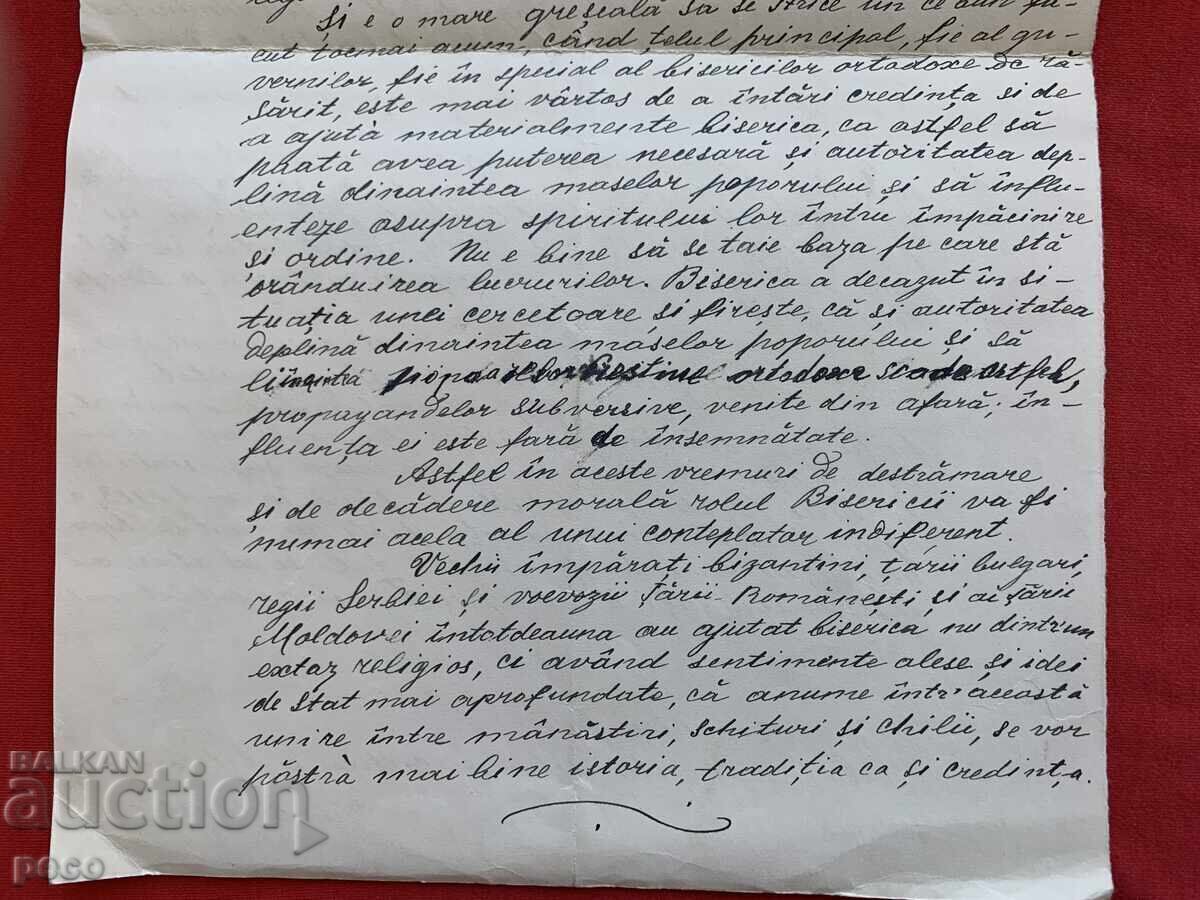 Și e o mare greșeală să se strice un ce bun fă-
cut tocmai acum, când țelul principal, fie al gu-
vernilor, fie în special al bisericilor ortodoxe de ră-
sărit, este mai vârtos de a întări credința și de
a ajutà materialmente biserica, ca astfel să
poată avea puterea necesară și autoritatea dep-
lină dinaintea maselor poporului și să influ-
ențeze asupra spiritului lor întru împăcinire
și ordine. Nu e bine să se taie baza pe care stă
orânduirea lucrurilor. Biserica a decazut în si-
tuația unei cercetoare și firește, că și autoritatea
deplină dinaintea maselor poporului și să
ortodoxe scade astfel,
propagandelor subversive, venite din afară; în-
fluența ei este fară de însemnătate.
Astfel în aceste vremuri de destrămare
și de decădere morală rolul Bisericii va fi
numai acela al unui conteplatar indiferent.
Vechii împărați bizantini, țarii bulgari,
regii Serbiei și voevozii Țării-Românești și ai Țării
Moldovei întotdeauna au ajutat biserica nu dintr'un
extaz religios, ci având sentimente alese și idei
de stat mai aprofundate, că anume într'această
unire între mânăstiri, schituri și chilii, se vor
păstrà mai bine istoria, tradiția ca și credința.
BALKAN
auction
poco